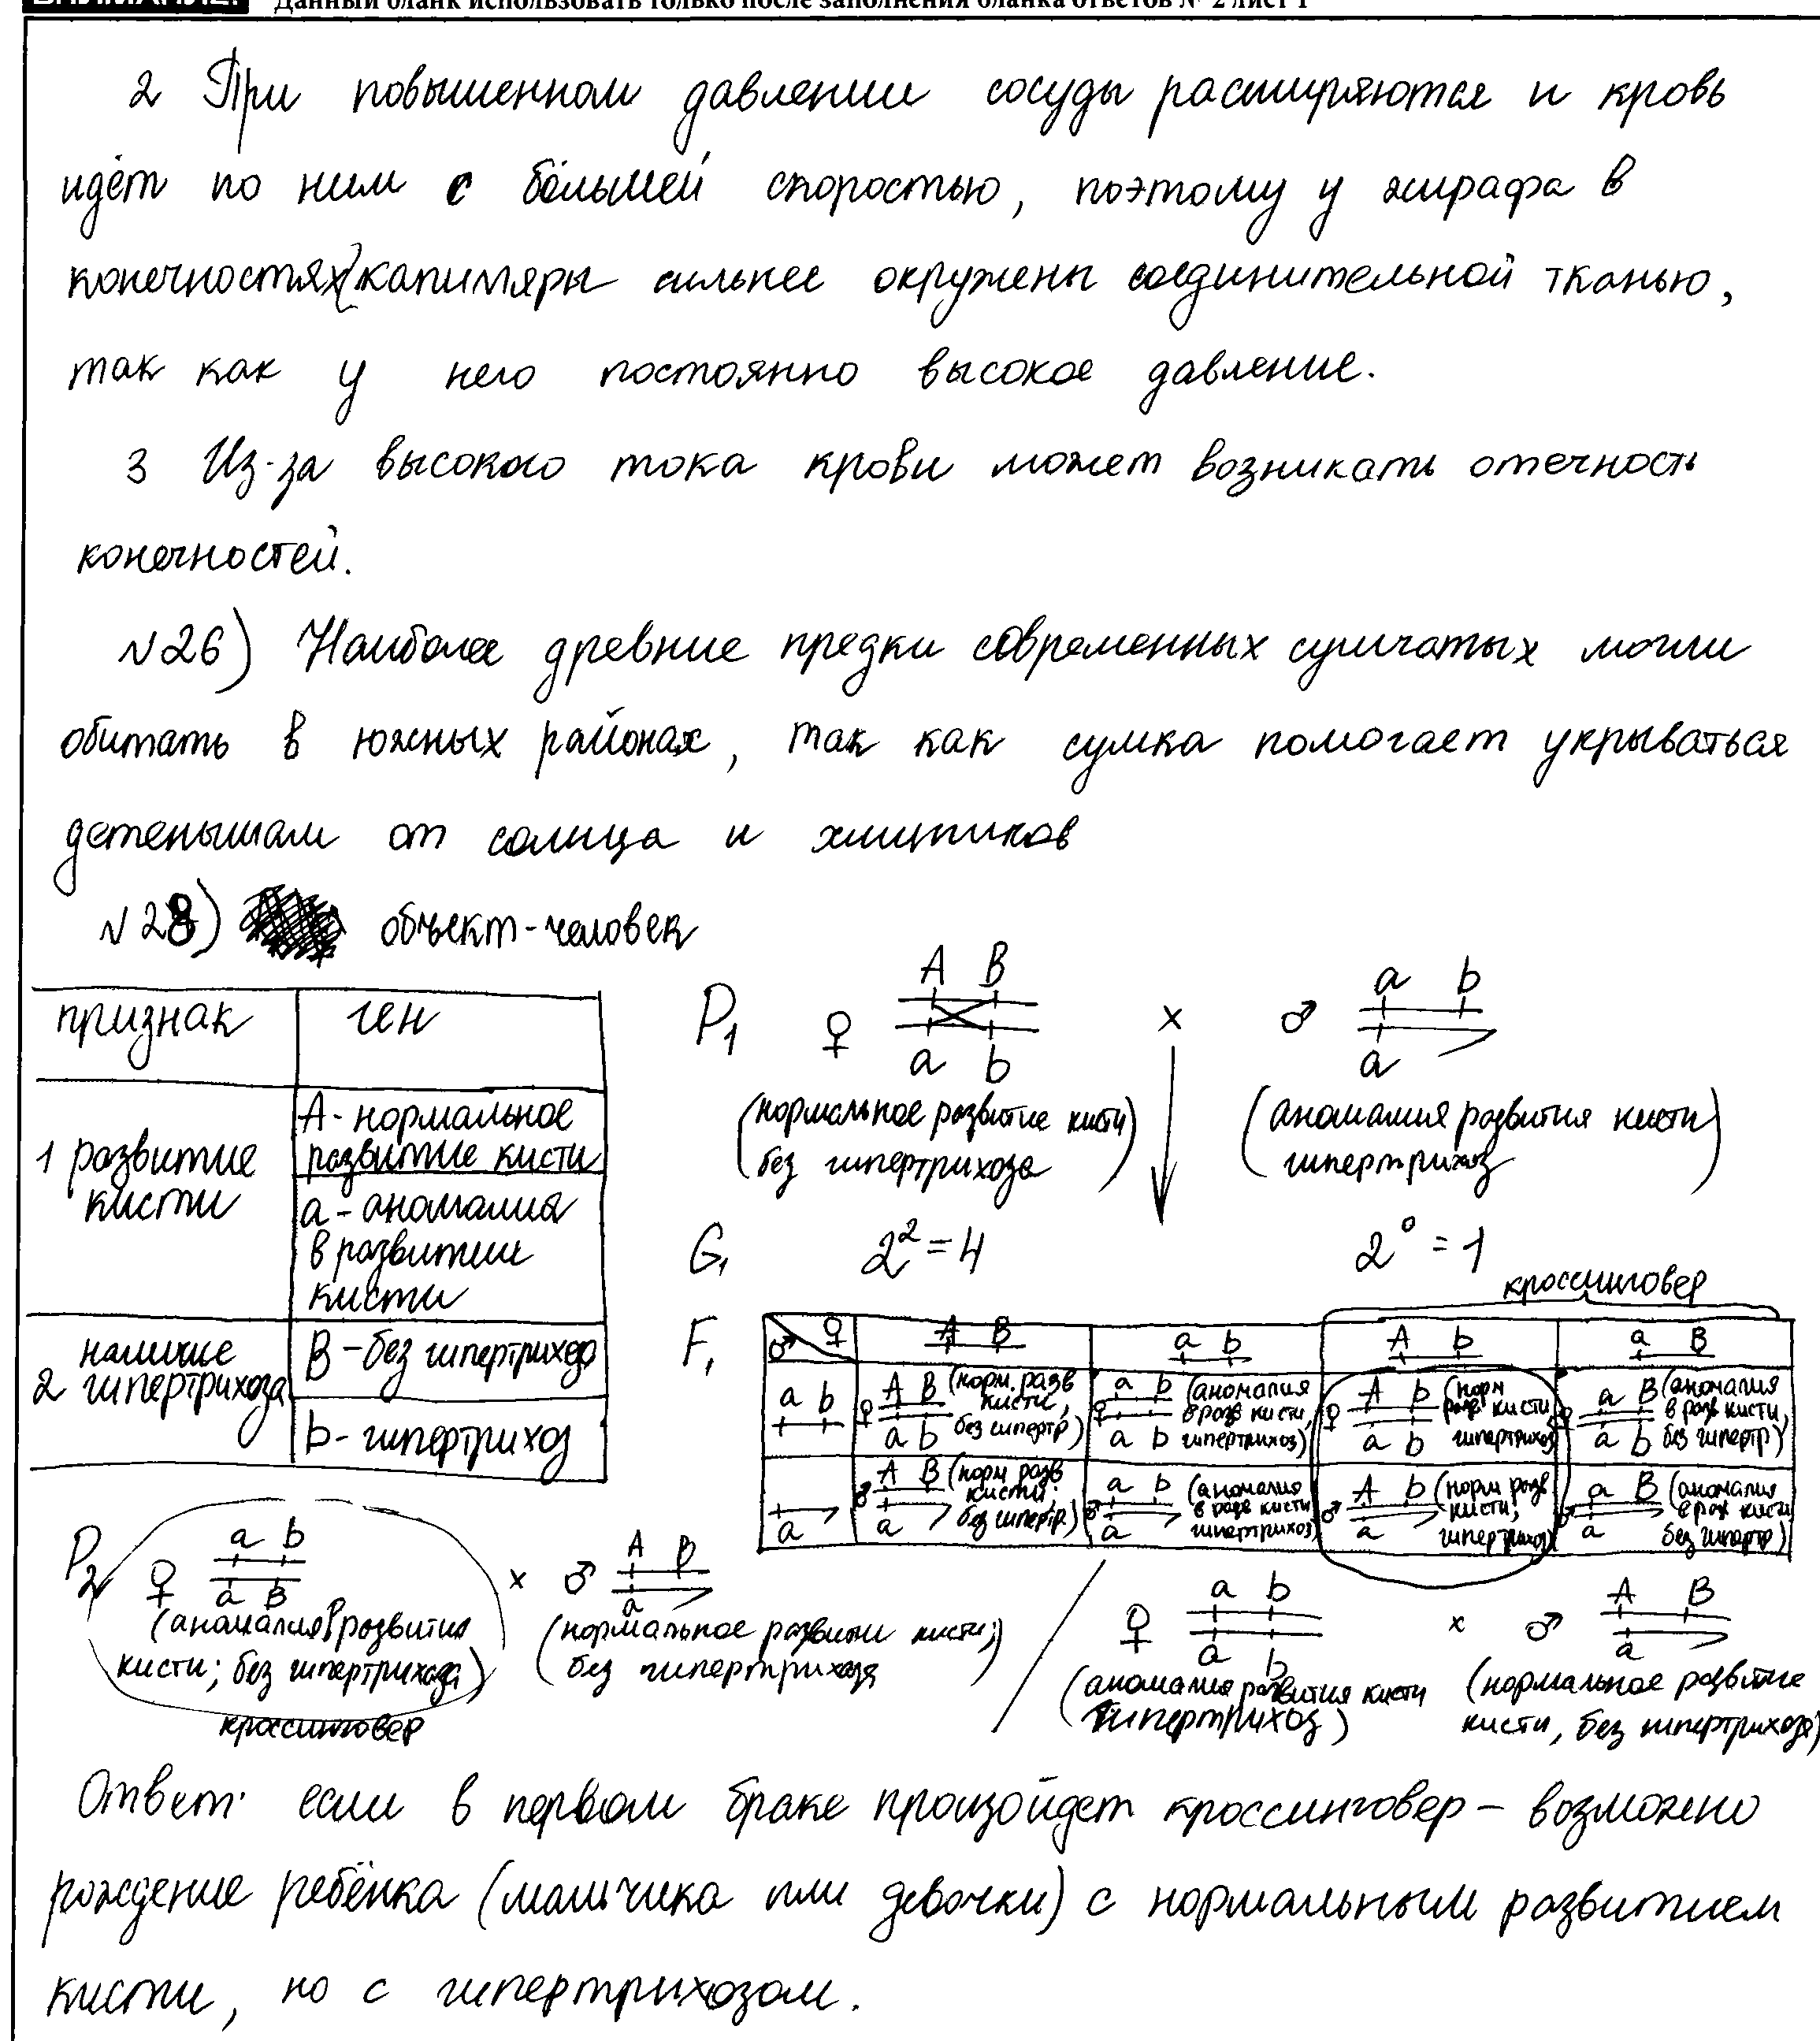 Данный бланк использовать только после заполнения бланка ответов № 2 лист 1
2 При повышенном давлении сосуды расширяются и кровь
идёт по ним с большей скоростью, поэтому у жирафа в
конечностях капилляры сильнее окружены соединительной тканью,
так как у него постоянно высокое давление.
3 Из-за высокого тока крови может возникать отечность
конечностей.
№26) Наиболее древние предки современных сумчатых могли
обитать в южных районах, так как сумка помогает укрываться
детенышам от солнца и хищников
№28) объект-человек
признак ген
1 развитие кисти
A - нормальное
развитие кисти
a - аномалия
в развитии
кисти
2 наличие гипертрихоза
B - без гипертрихоза
b - гипертрихоз
P1 ♀ A B a b x ♂ a b a
(нормальное развитие кисти)
(без гипертрихоза)
(аномалия развития кисти)
(гипертрихоз)
G1 2² = 4 2⁰ = 1
кроссинговер
F1 ♂ ♀ A B a b A b a B
a b ♀ A B a b (норм. разв кисти, без гипертр) ♀ a b a b (аномалия в разв кисти, гипертрихоз) ♀ A b a b (норм разв кисти гипертрихоз) ♀ a B a b (аномалия в разв кисти, без гипертр)
a ♂ A B a (норм разв кисти, без гипертр.) ♂ a b a (аномалия в разв кисти гипертрихоз) ♂ A b a (норм разв кисти, гипертрихоз) ♂ a B a (аномалия в раз кисти без гипертр)
P2 ♀ a b a B x ♂ A B a
(аномалия развития
кисти; без гипертрихоза)
кроссинговер
(нормальное развитие кисти;)
(без гипертрихоза
♀ a b a b x ♂ A B a
(аномалия развития кисти
гипертрихоз)
(нормальное развитие
кисти, без гипертрихоза)
Ответ: если в первом браке произойдет кроссинговер – возможно
рождение ребёнка (мальчика или девочки) с нормальным развитием
кисти, но с гипертрихозом.